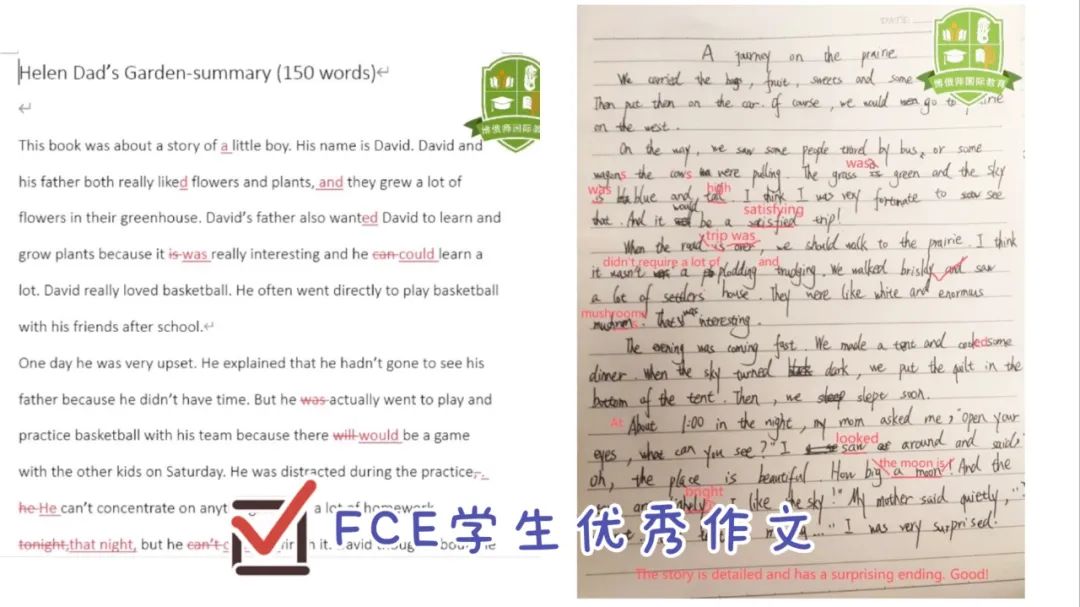 Helen Dad's Garden-summary (150 words)
This book was about a story of a little boy. His name is David. David and
his father both really liked flowers and plants, and they grew a lot of
flowers in their greenhouse. David's father also wanted David to learn and
grow plants because it is was really interesting and he can could learn a
lot. David really loved basketball. He often went directly to play basketball
with his friends after school.
One day he was very upset. He explained that he hadn't gone to see his
father because he didn't have time. But he was actually went to play and
practice basketball with his team because there will would be a game
with the other kids on Saturday. He was distracted during the practice,.
he He can't concentrate on a lot of homework
tonight,that night, but he can't it. David
博俄师国际教
DATE
博俄师国际教育
A journey on the prairie
We carried the bags, fruit, sweets and some
Then put then on the car. Of course, we would go to
on the west.
On the way, we saw some people travel by bus, or some
wagons the cows were pulling. The grass is was green and the sky
was is blue and high. I think I was very fortunate to see
that. And it would be a satisfied satisfying trip!
When the road is over, trip was we should walk to the prairie. I think
didn't require a lot of and
it wasn't a plodding trudging. We walked briskly and saw
a lot of settlers house. They were like white and enormous
mushrooms
mushroom. That's was interesting.
The evening was coming fast. We made a tent and cooked some
dinner. When the sky turned dark, we put the quilt in the
bottom of the tent. Then, we slept soon.
At About 1:00 in the night, my mom asked me, "Open your
eyes, what can you see?" I looked around and said,
oh, the place is beautiful. How big a moon the moon is! And the
bright I like the sky!" My mother said quietly, "
" I was very surprised.
The story is detailed and has a surprising ending. Good!
FCE学生优秀作文